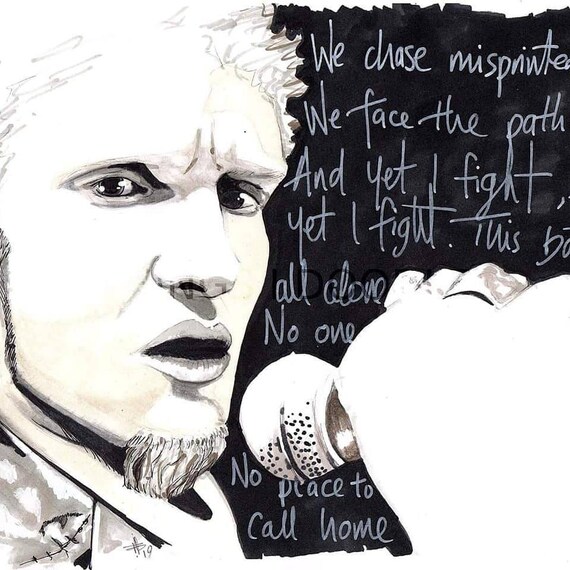 We chase misprinted
We face the path
And yet I fight,
yet I fight. This
all alone
No one
No place to
call home
'19